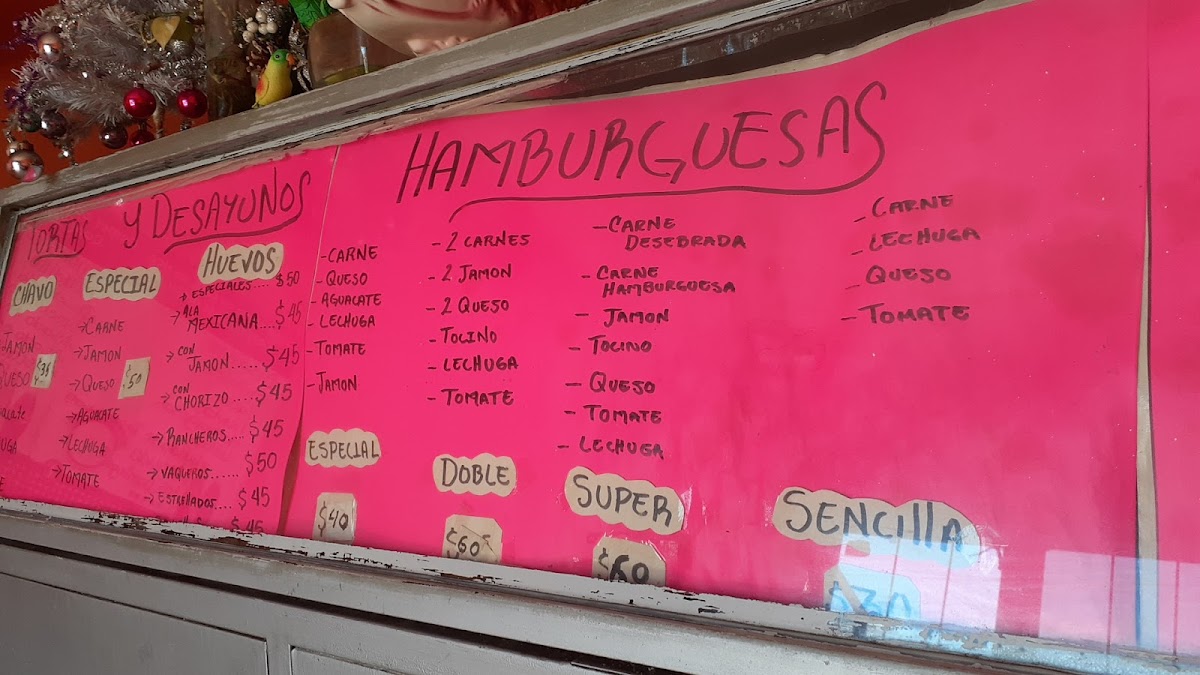 TORTAS Y DESAYUNOS
CHAVO
JAMON
QUESO
$35
ESPECIAL
→CARNE
→JAMON
→QUESO
$50
→AGUACATE
→LECHUGA
→TOMATE
HUEVOS
→ESPECIALES.... $50
→ALA
MEXICANA.... $45
→CON
JAMON..... $45
→CON
CHORIZO.... $45
→RANCHEROS.... $45
→VAQUEROS..... $50
→ESTRELLADOS.... $45
$45
HAMBURGUESAS
-CARNE
-QUESO
-AGUACATE
-LECHUGA
-TOMATE
-JAMON
ESPECIAL
$40
-2 CARNES
-2 JAMON
-2 QUESO
-TOCINO
-LECHUGA
-TOMATE
DOBLE
$60
-CARNE
DESEBRADA
-CARNE
HAMBURGUESA
- JAMON
- TOCINO
- QUESO
- TOMATE
- LECHUGA
SUPER
$60
-CARNE
-LECHUGA
-QUESO
-TOMATE
SENCILLA
$30